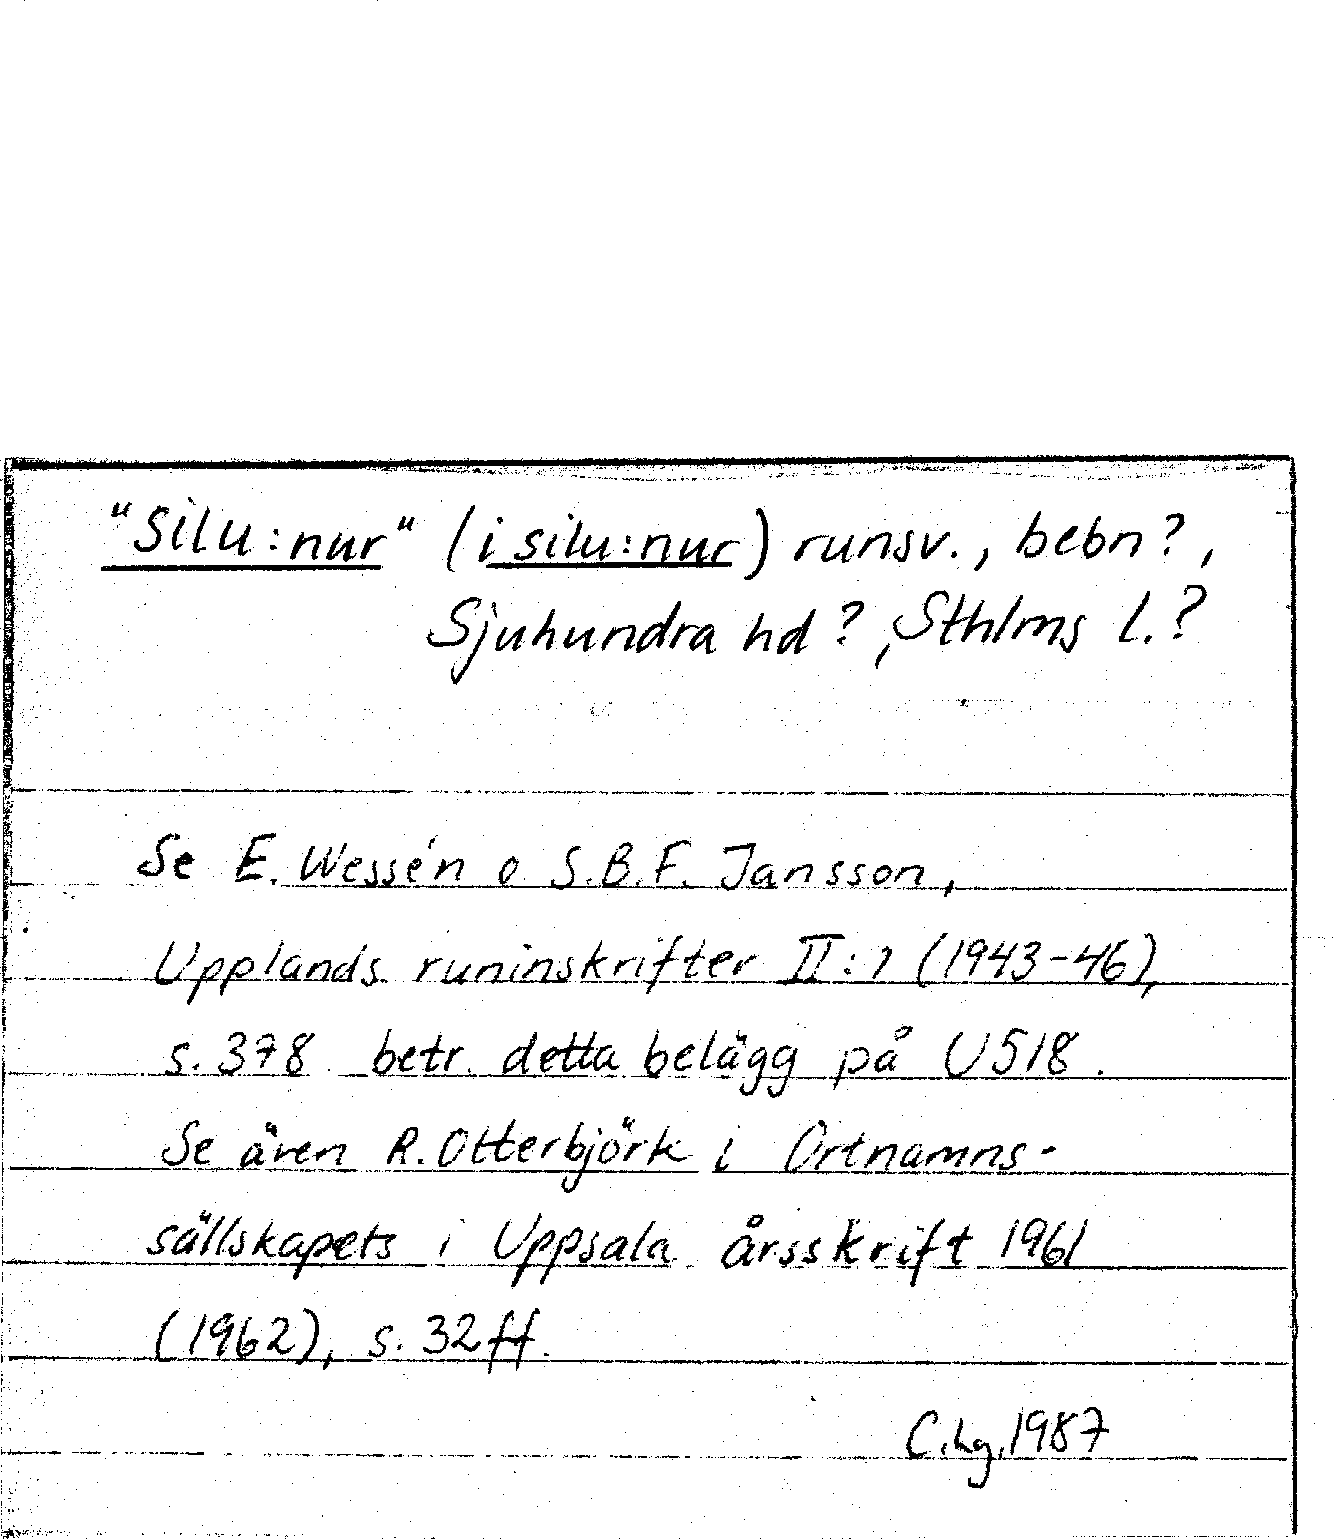 "Silu:nur" (i silu:nur) runsv., bebn?,
Sjuhundra hd?, Sthlms l.?
Se E. Wessén o S.B.F. Jansson,
Upplands runinskrifter II:1 (1943-46),
s. 378 betr. detta belägg på U518.
Se även R. Otterbjörk i Ortnamns-
sällskapets i Uppsala årsskrift 1961
(1962), s. 32ff.
C.hg. 1987